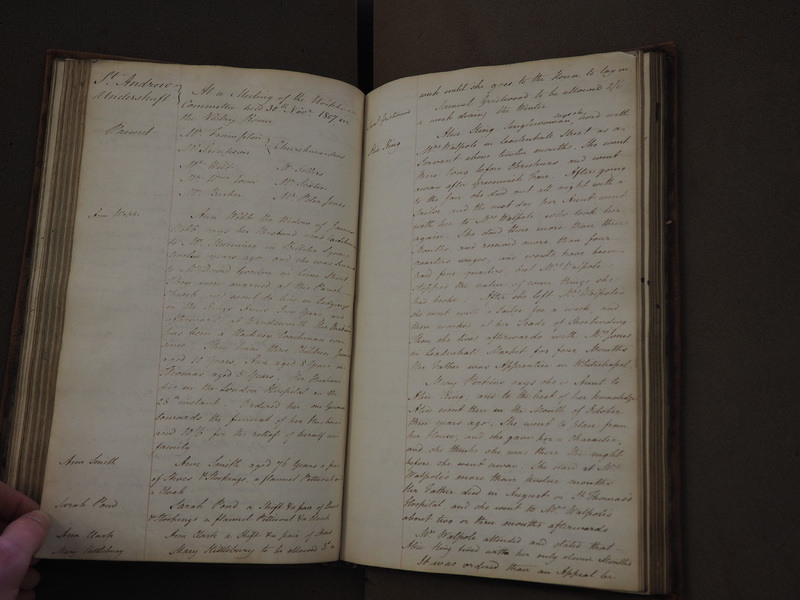 St. Andrew
Undershaft
At a Meeting of the Workhouse
Committee held 30th Novr. 1807 in
the Vestry Room
Present
Mr Frempton
Mr Simpson
Churchwardens
Mr Webb
Mr Sellers
Mr Wm
Mr Slater
Mr Barber
Mr Peter Jones
Ann Webb
Ann Webb the Widow of James
Webb says her Husband was
to Mr in Bricklers Square
Twelve years ago and she was Servant
to Mr David Gordon in Lime Street
They were married at the Parish
Church, and went to live in Lodgings
in the Kings Arms Inn Yard, and
afterwards at Wandsworth Her Husband
has been a Hackney Coachman ever
since. They have three Children James
aged 10 Years, Ann aged 8 Years and
Thomas aged 3 Years. Her Husband
died in the London Hospital on the
28th instant. Ordered her one Guinea
towards the funeral of her Husband
and 10/6 for the relief of herself and
family
Ann Smith
Ann Smith aged 76 Years a pair
of Shoes & Stockings, a flannel Petticoat &
a Cloak
Sarah Pond
Sarah Pond a Shift & a pair of Shoes
& Stockings a flannel Petticoat & a Cloak
Ann Clark
Ann Clark a Shift & a pair of Shoes
Mary Kettlebury
Mary Kettlebury to be allowed 3s a
week until she goes to the House to lay in
Samuel Gristwood
Samuel Gristwood to be allowed 2/6
a week during the Winter
Alice King
Alice King Singlewoman lived with
Mrs Walpole in Leadenhall Street as a
Servant about twelve months. She went
there long before Christmas and went
away after Greenwich Fair. After going
to the fair she slept out all night with a
Sailor and the next day her Aunt went
with her to Mrs Walpole who took her
again. She staid there more than three
Months, and received more than four
quarters wages, and would have been
paid five quarters, but Mrs Walpole
stopped the value of some things she
had broke. After she left Mrs Walpole's
she went with a Sailor for a week and
then worked at her Trade of Shoebinding
Then she lived afterwards with Mrs Jones
in Leadenhall Market for four Months
Her Father was Apprentice in Whitechapel
Mary Perkins says she is Aunt to
Alice King, and to the best of her knowledge
Alice went there in the Month of October
three years ago. She went to Place from
her house, and she gave her a Character,
and she thinks she was there the night
before she went away. She staid at Mrs
Walpoles more than twelve months
Her Father died in August in St Thomas's
Hospital and she went to Mrs Walpoles
about two or three months afterwards
Mrs Walpole attended and stated that
Alice King lived with her only eleven Months
It was ordered that an Appeal be